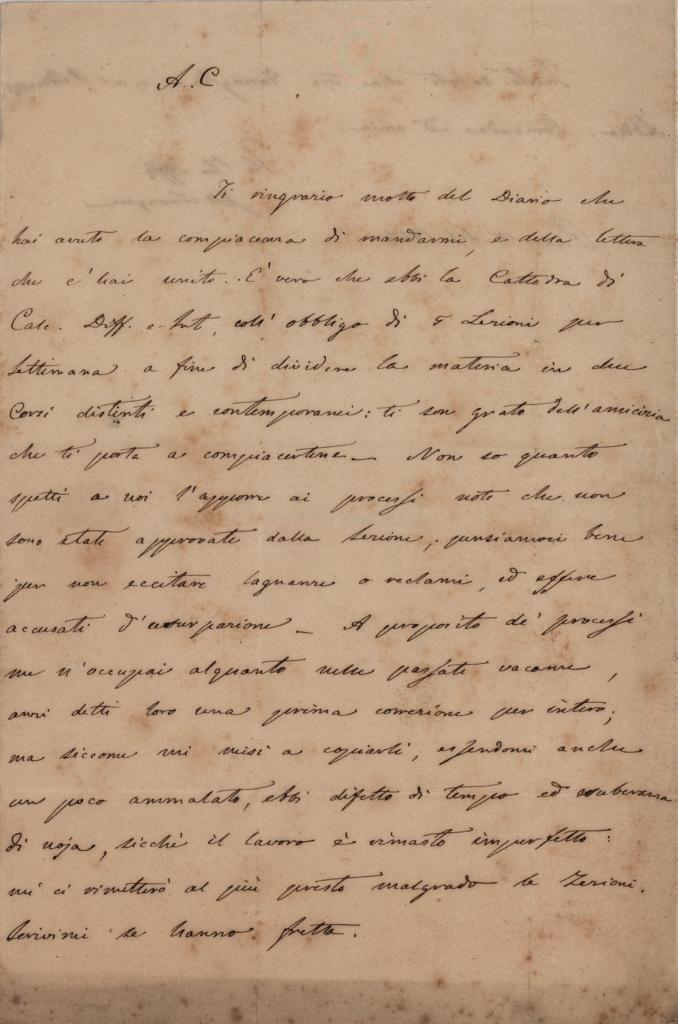 A. C
Ti ringrazio molto del Diario che
hai avuto la compiacenza di mandarmi, e della lettera
che c'hai unito. E' vero che ebbi la Cattedra di
Calc. Diff. e Int, coll' obbligo di 5 Lezioni per
settimana a fine di dividere la materia in due
Corsi distinti e contemporanei: ti son grato dell'amicizia
che ti porta a compiacertene_ Non so quanto
spetti a noi l'apporre ai processi note che non
sono state approvate dalla Sezione; pensiamoci bene
per non eccitare lagnanze o reclami, ed essere
accusati d'usurpazione_ A proposito de' processi
me n'occupai alquanto nelle passate vacanze,
anzi detti loro una prima correzione per intero;
ma siccome mi misi a copiarli, essendomi anche
un poco ammalato, ebbi difetto di tempo ed esuberanza
di noja, sicchè il lavoro è rimasto imperfetto:
mi ci rimetterò al più presto malgrado le Lezioni.
Scrivimi se hanno fretta.